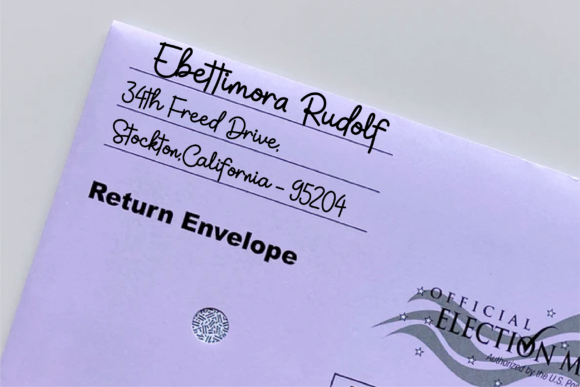 Ebettimora Rudolf
34th Freed Drive,
Stockton,California - 95204
Return Envelope
OFFICIAL
ELECTION M
Authorized by the U.S. P